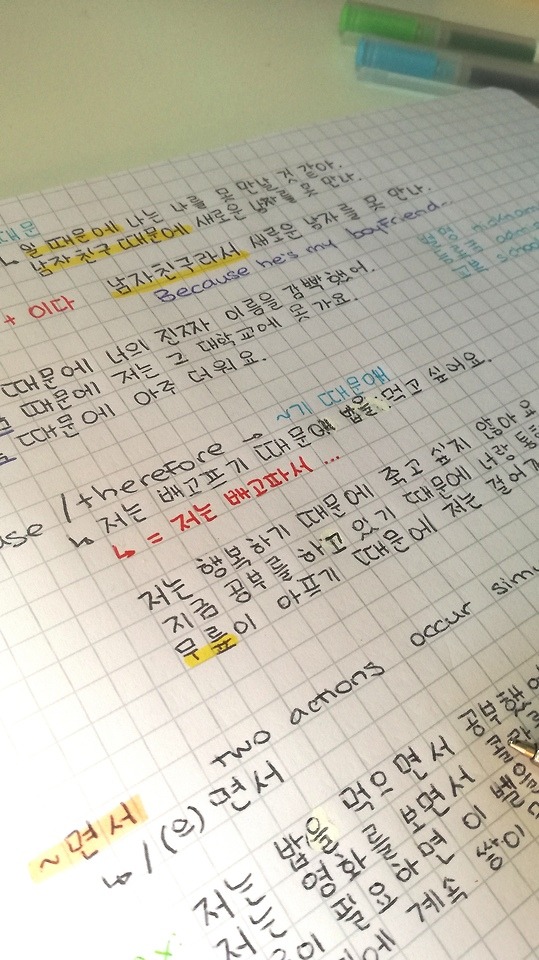 때문
↳ 일 때문에 나는 너를 못 만날 것 같아.
남자 친구 때문에 새로운 남자를 못 만나.
남자친구라서 새로운 남자를 못 만나.
Because he's my boyfriend..
+ 이다
별명 nickname
school
때문에 너의 진짜 이름을 깜빡했어.
때문에 저는 그 대학교에 못 가요.
때문에 아주 더워요.
/therefore → ~기 때문에
↳ 저는 배고프기 때문에 밥을 먹고 싶어요.
↳ = 저는 배고파서 ...
저는 행복하기 때문에 죽고 싶지 않아요
지금 공부를 하고 있기 때문에 너랑
무릎이 아프기 때문에 저는 걸어
two actions occur
~면서
↳ /(으)면서
저는 밥을 먹으면서 공부했
저는 영화를 보면서
필요하면 이 벨
계속 쌓이